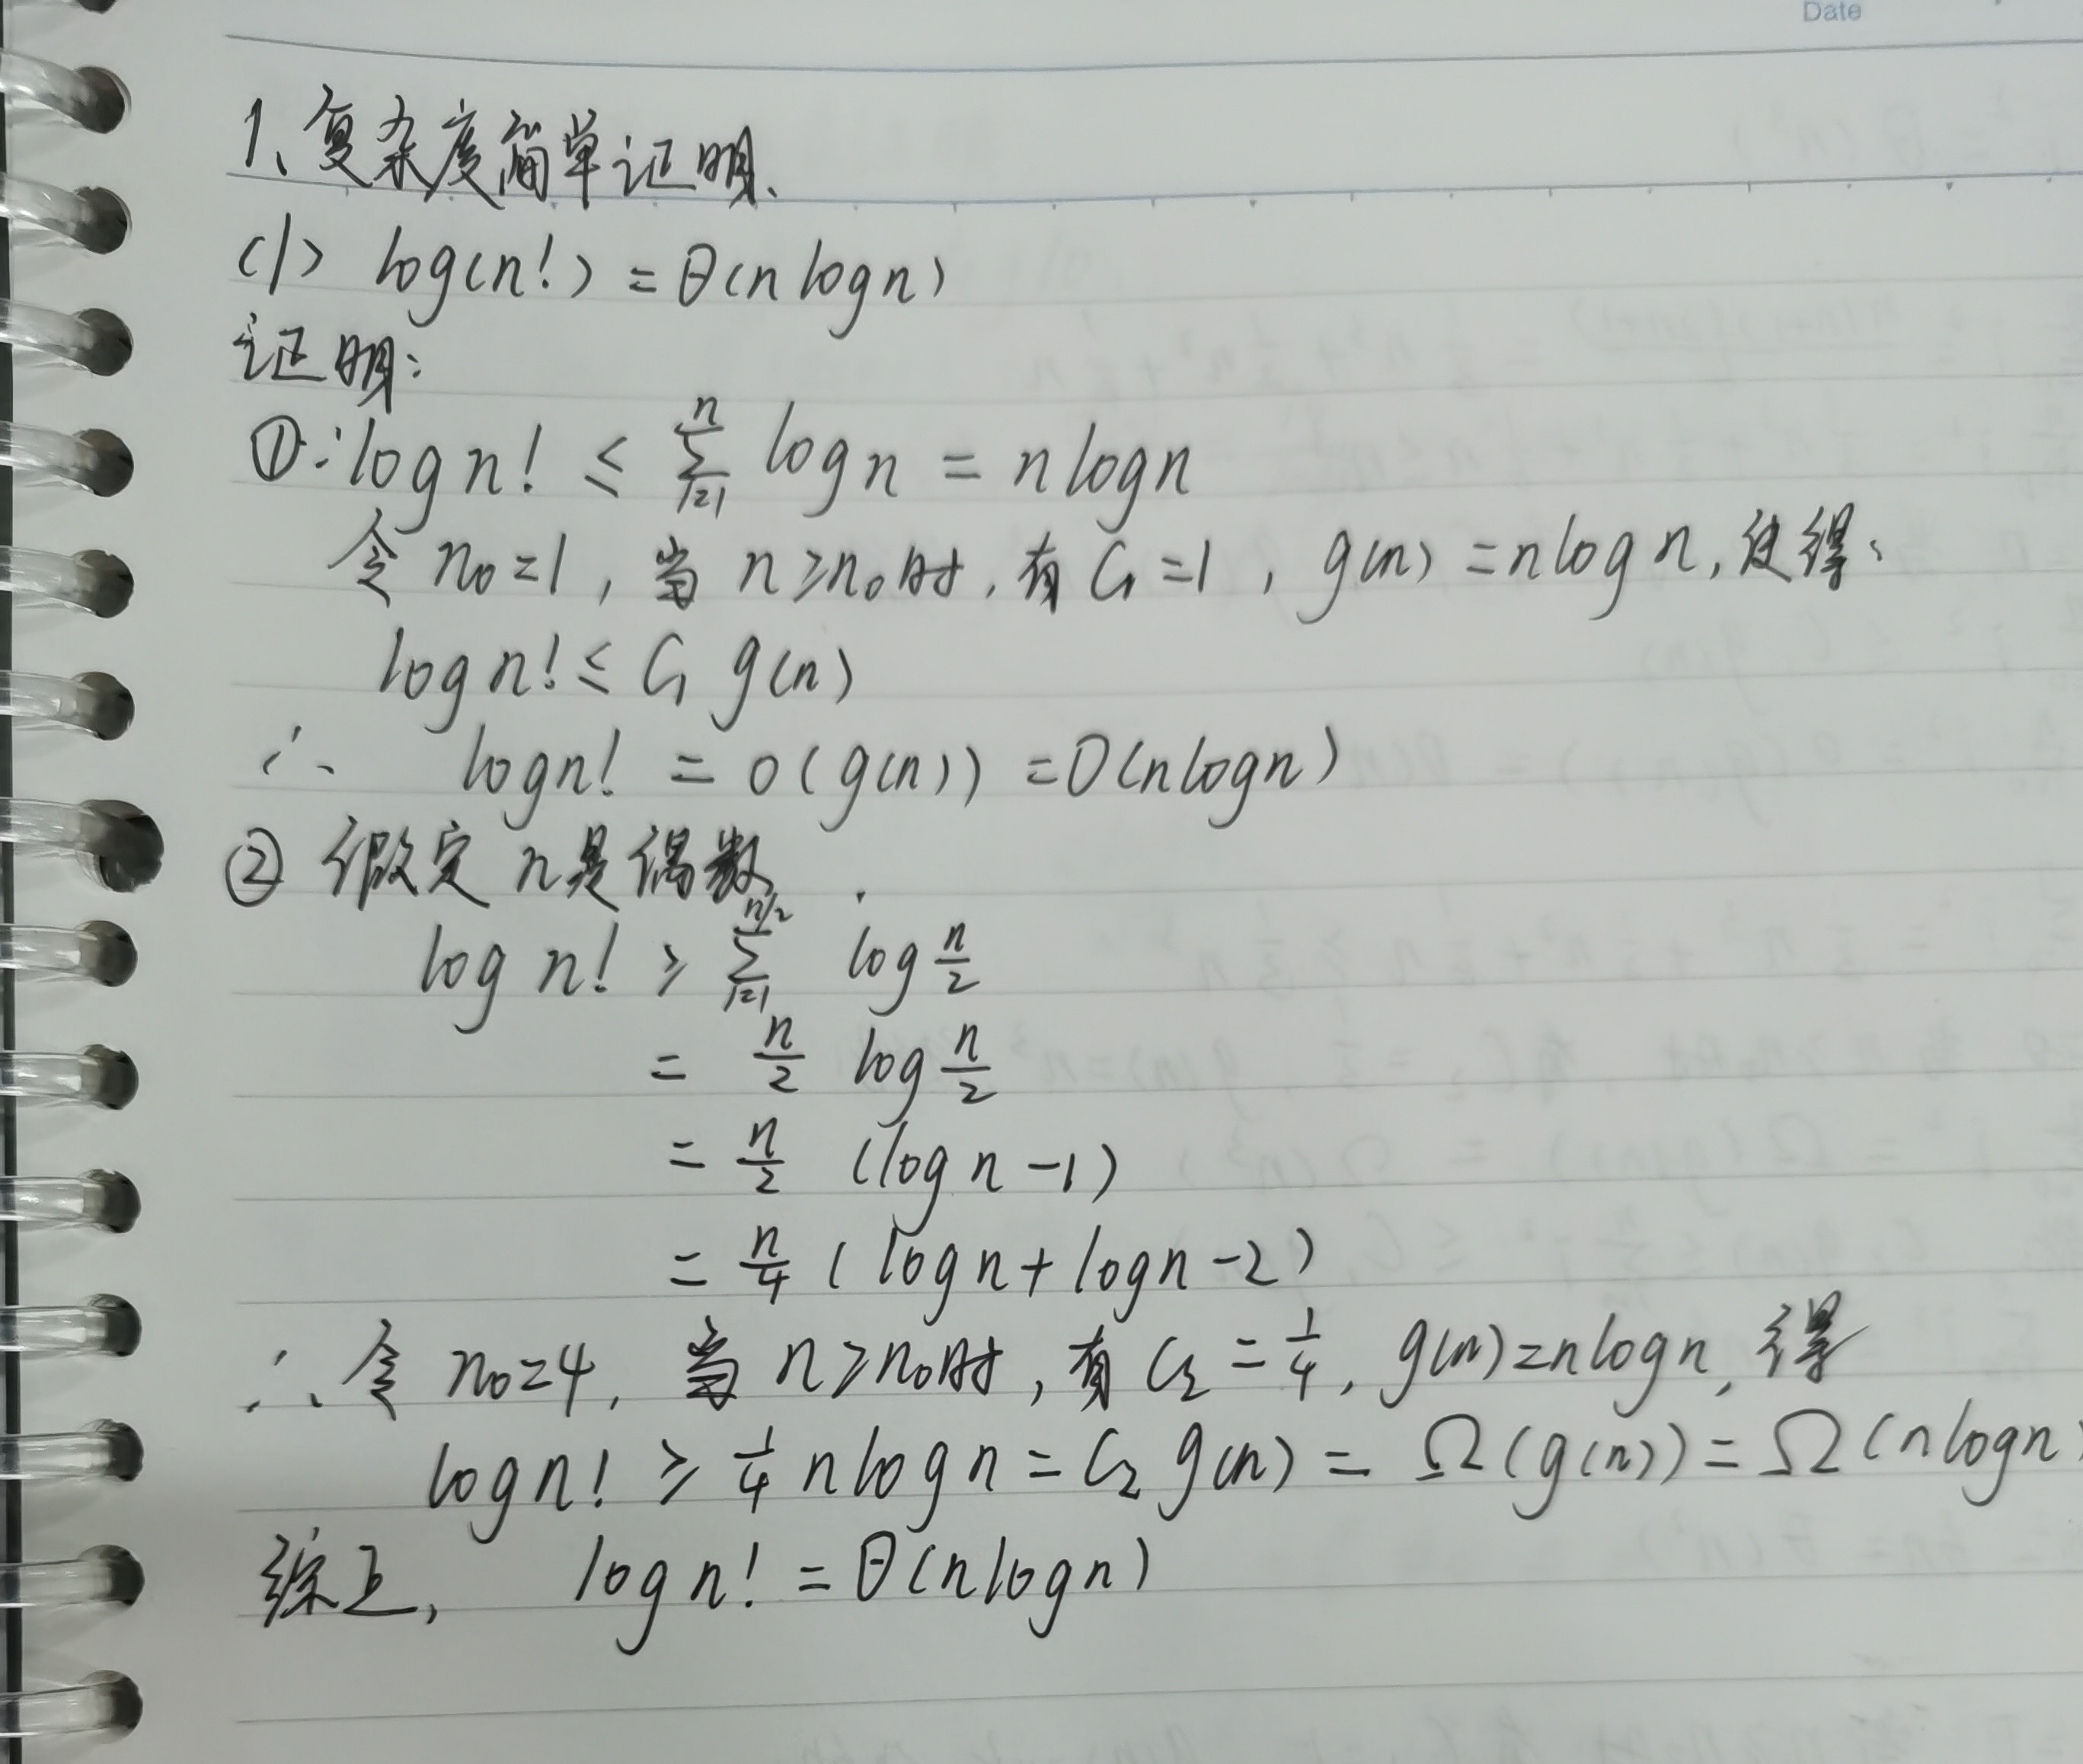 Date
1、复杂度简单证明、
(1) log(n!) = θ(n log n)
证明:
①∵log n! ≤ ∑_{i=1}^{n} log n = n log n
令 n₀=1, 当 n≥n₀时, 有 C₁=1, g(n) = n log n, 使得:
log n! ≤ C₁ g(n)
∴ log n! = O(g(n)) = O(n log n)
② 假定 n是偶数.
log n! ≥ ∑_{i=1}^{n/2} log n/2
= n/2 log n/2
= n/2 (log n - 1)
= n/4 (log n + log n - 2)
∴ 令 n₀=4, 当 n≥n₀时, 有 C₂ = 1/4, g(n)=n log n, 得
log n! ≥ 1/4 n log n = C₂ g(n) = Ω(g(n)) = Ω(n log n)
综上, log n! = θ(n log n)